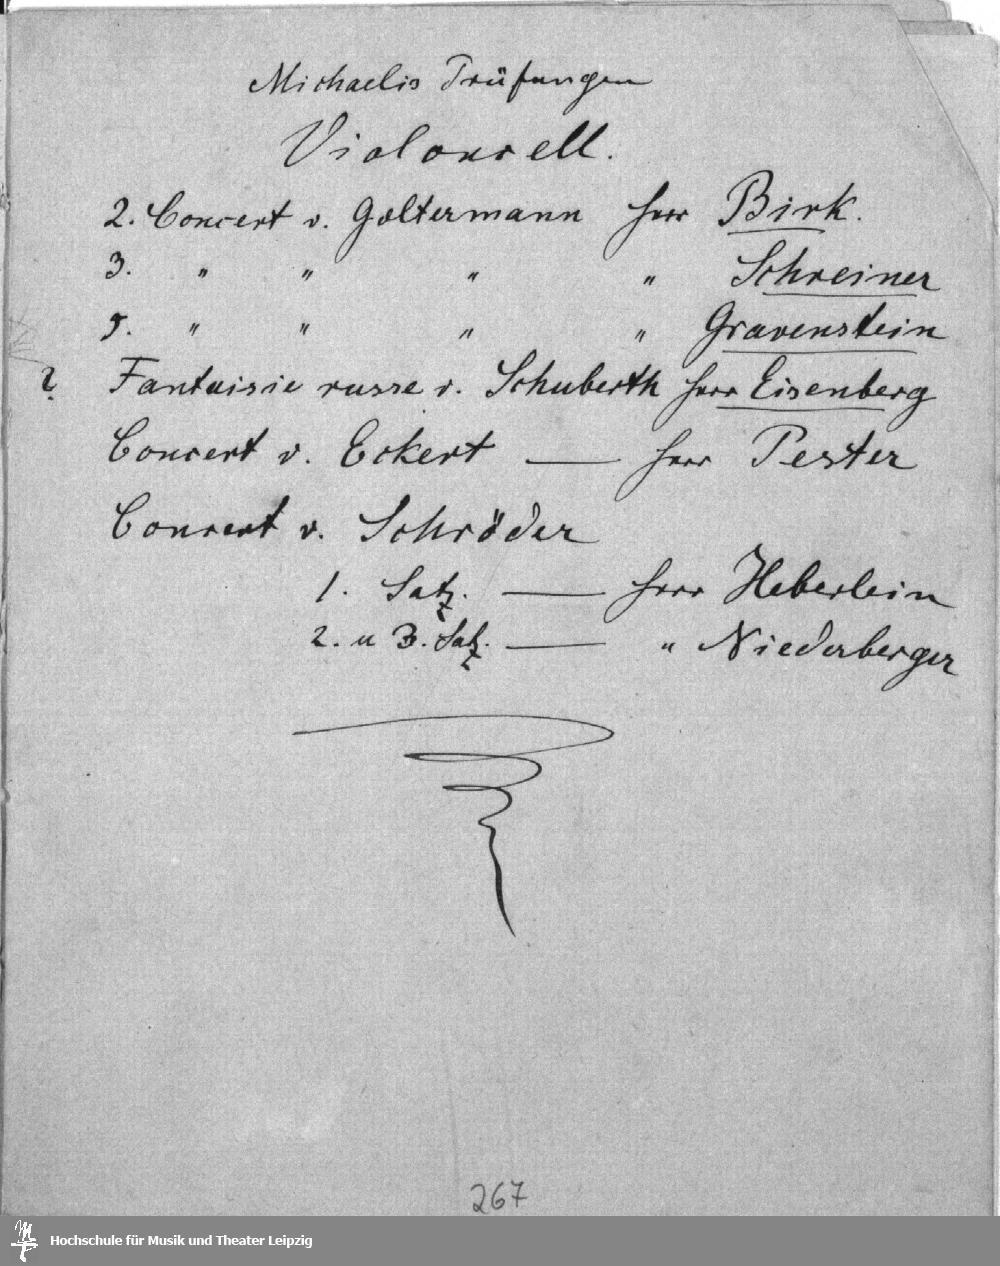 Michaelis Prüfungen
Violoncell.
2. Concert v. Goltermann Herr Birk.
3. " " " " Schreiner
5. " " " " Gravenstein
? Fantaisie russe v. Schuberth Herr Eisenberg
Concert v. Eckert — Herr Pester
Concert v. Schröder
1. Satz. — Herr Heberlein
2. u 3. Satz. — " Niederberger
267
Hochschule für Musik und Theater Leipzig